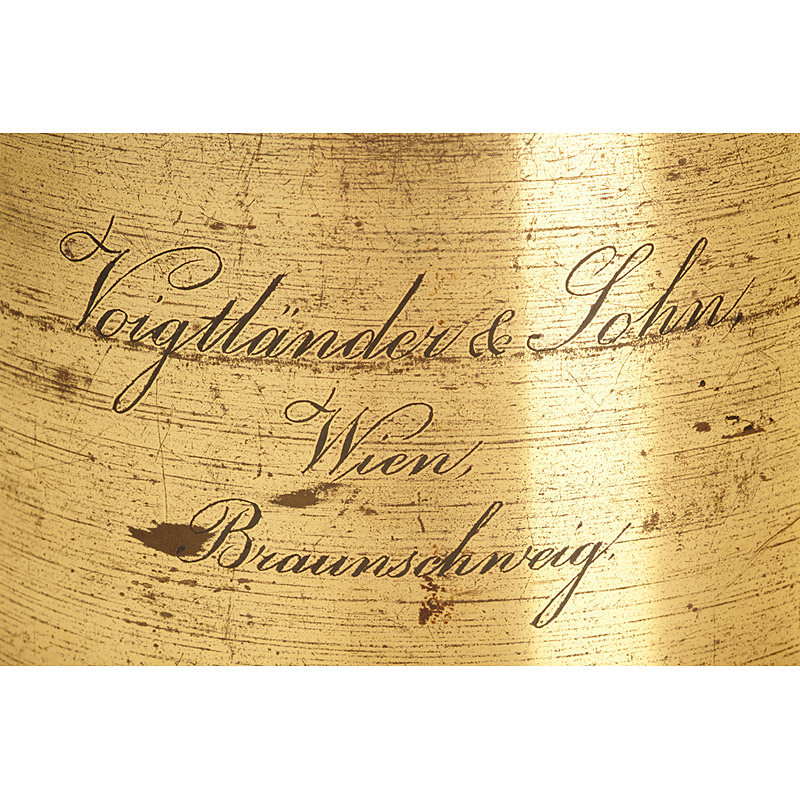 Voigtländer & Sohn,
Wien,
Braunschweig.